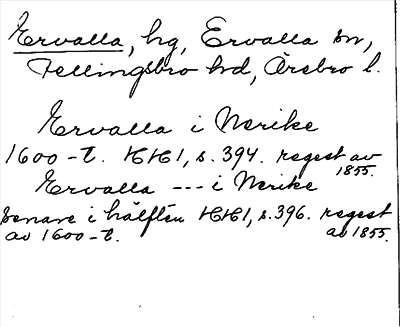 Ervalla, hg, Ervalla sn,
Fellingsbro hd, Örebro l.
Ervalla i Nerike
1600-t. HH1, s. 394. regest av
1855.
Ervalla --- i Nerike
Senare i hälften HH1, s. 396. regest
av 1600-t. av 1855.